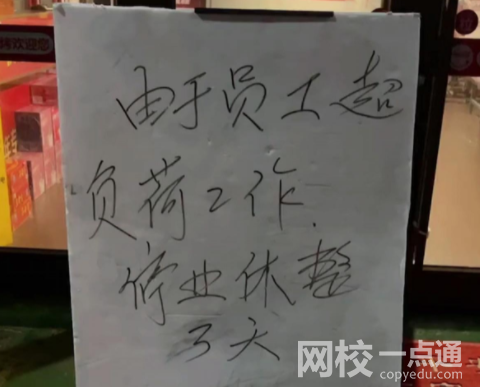 烤欢迎您
由于员工超
负荷工作.
停业休整
3天
网校一点通
copyedu.com